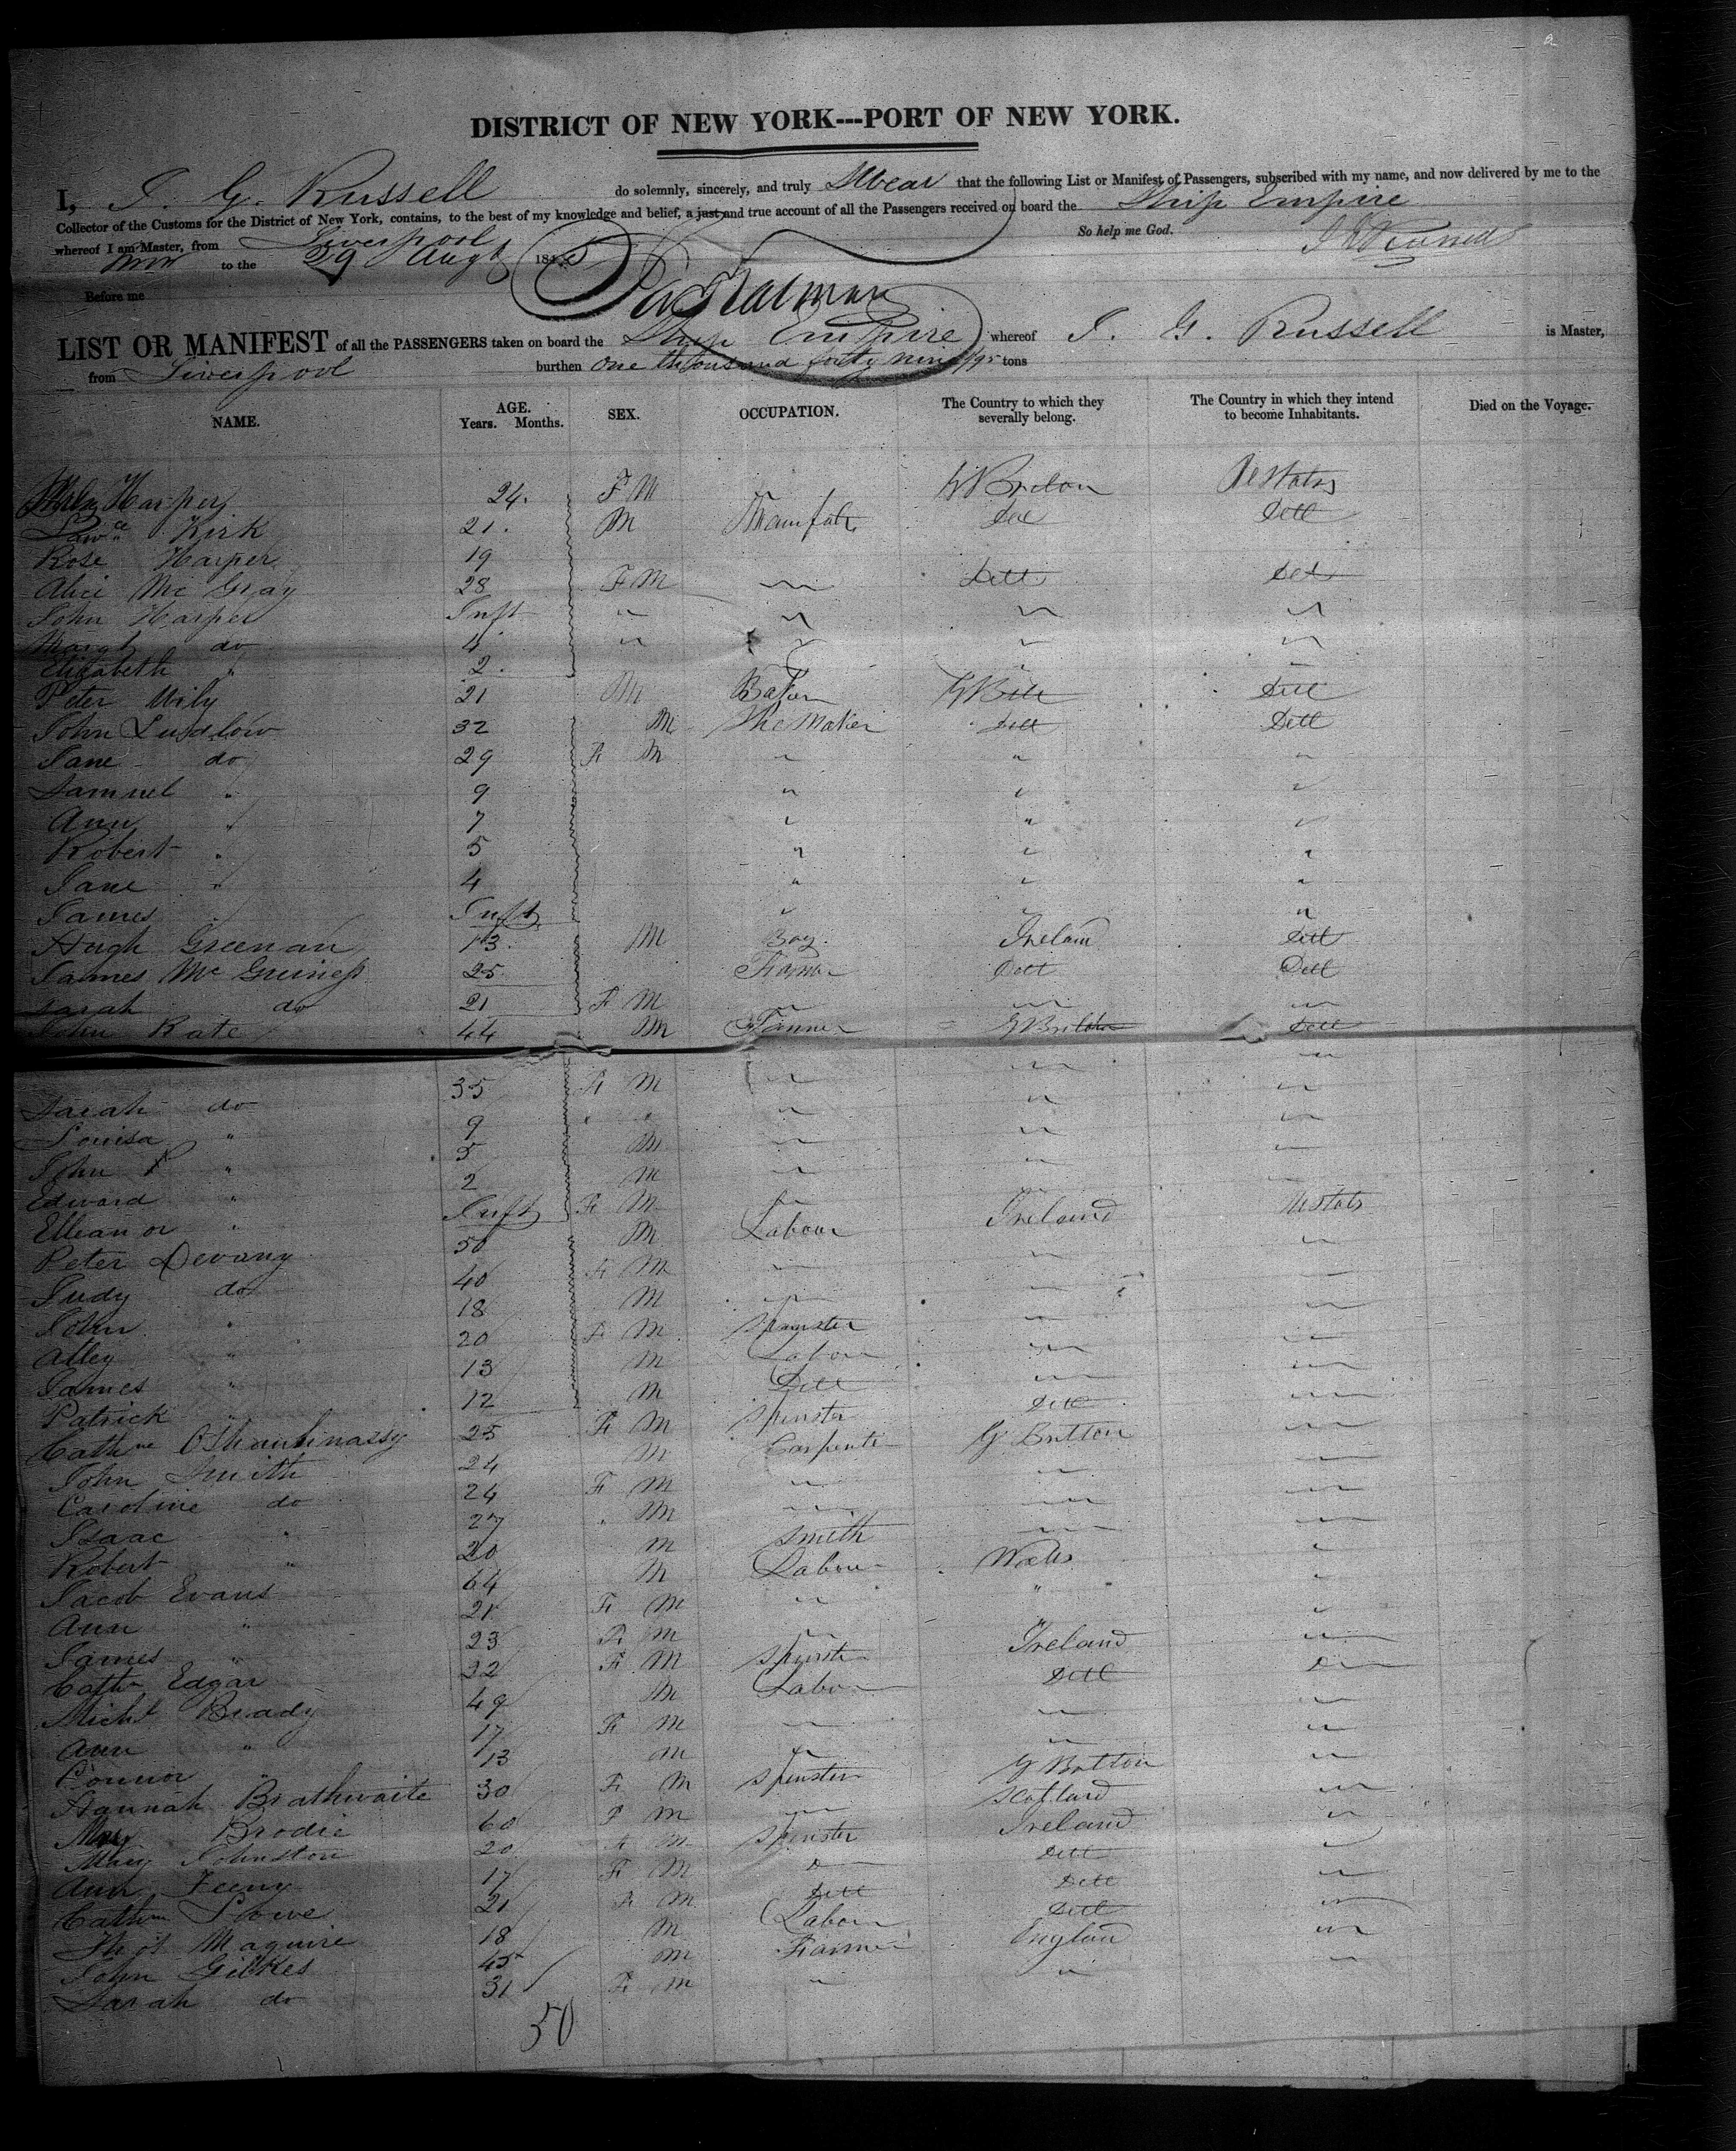 2
DISTRICT OF NEW YORK---PORT OF NEW YORK.
I, J. G. Russell do solemnly, sincerely, and truly Swear that the following List or Manifest of Passengers, subscribed with my name, and now delivered by me to the
Collector of the Customs for the District of New York, contains, to the best of my knowledge and belief, a just and true account of all the Passengers received on board the Ship Empire
whereof I am Master, from Liverpool So help me God.
to the 29 Augt 1845
Before me
LIST OR MANIFEST of all the PASSENGERS taken on board the Ship Empire whereof J. G. Russell is Master,
from Liverpool burthen One thousand forty nine /95 tons
NAME. AGE. Years. Months. SEX. OCCUPATION. The Country to which they severally belong. The Country in which they intend to become Inhabitants. Died on the Voyage.
Harper 24. F M G Briton UStates
Kirk 21. M Ditt Ditt
Rose Harper 19
Alice Mc Gray 28 F M " Ditt Ditt
John Harper Inft " " " "
Margt do 4 " " " "
Elizabeth " 2. " "
Peter Wily 21 M Baker G Brit Ditt
John Ludlow 32 M Shoe Maker Ditt Ditt
Jane do 29 F M " " "
Samuel " 9 " " "
Ann " 7 " " "
Robert " 5 " " "
Jane " 4 " " "
James " Inft " " "
Hugh Greenan 13. M Boy. Ireland Ditt
James Mc Guiness 25 Farmer Ditt Ditt
Sarah do 21 F M " " "
John Kate 44 M Farmer G Britton Ditt
Sarah do 35 F M " " "
Louisa " 9 " " " " "
John P " 5 M " " "
Edward " 2 M " " "
Elleanor " Inft F M "
Peter Devany 50 M Labour Ireland UStats
Judy do 40 F M " " "
John " 18 M " " "
Alley " 20 F M Spinster " "
James " 13 M Labour " "
Patrick " 12 M Ditt " "
Cathne OShaughnassy 25 F M Spinster Ditt "
John Smith 24 M Carpenter G Britton "
Caroline do 24 F M " " "
Isaac " 27 " M " " "
Robert " 20 M Smith " "
Jacob Evans 64 M Labour Wales "
Ann " 21 F M " " "
James " 23 F M " "
Cathn Edgar 22 F M Spinster Ireland "
Michl Brady 49 M Labour Ditt "
Ann " 17 F M " " "
Connor " 13 M " " "
Hannah Brathwaite 30 F M Spinster G Britton "
Mary Brodie 60 F M " Scotland "
Mary Johnston 20 F M Spinster Ireland "
Ann Feeny 17 F M " Ditt "
Cathrin Lowe 21 F M Ditt Ditt "
Thos Maguire 18 M Labour Ditt "
John Gilkes 45 M Farmer England "
Sarah do 31 F M " " "
50